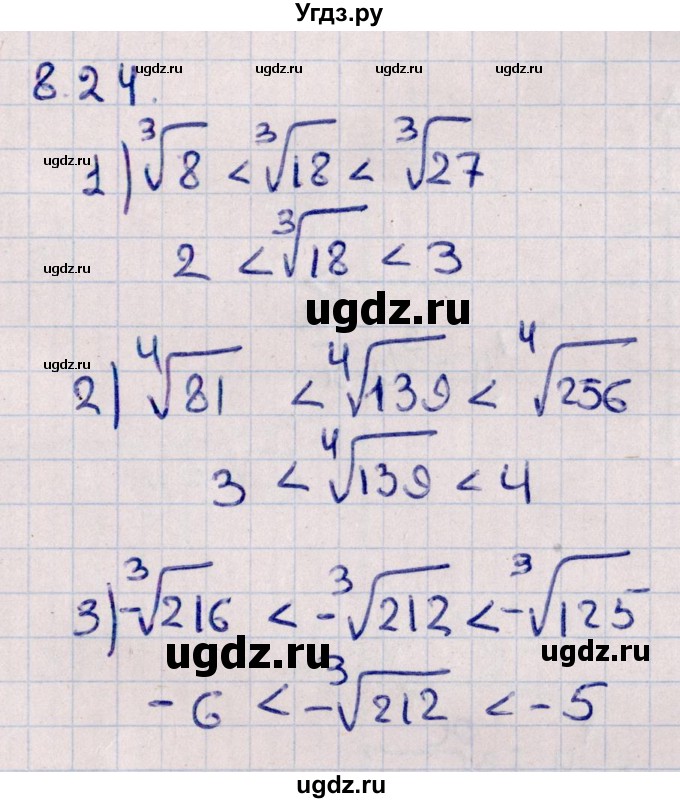 Угдз.ру
ugdz.ru ugdz.ru ugdz.ru ugdz.ru
8.24.
ugdz.ru
1) ∛8 < ∛18 < ∛27
ugdz.ru
2 < ∛18 < 3
ugdz.ru
ugdz.ru
2) ∜81 < ∜139 < ∜256
3 < ∜139 < 4
3) -∛216 < -∛212 < -∛125
ugdz.ru ugdz.ru
-6 < -∛212 < -5
ugdz.ru